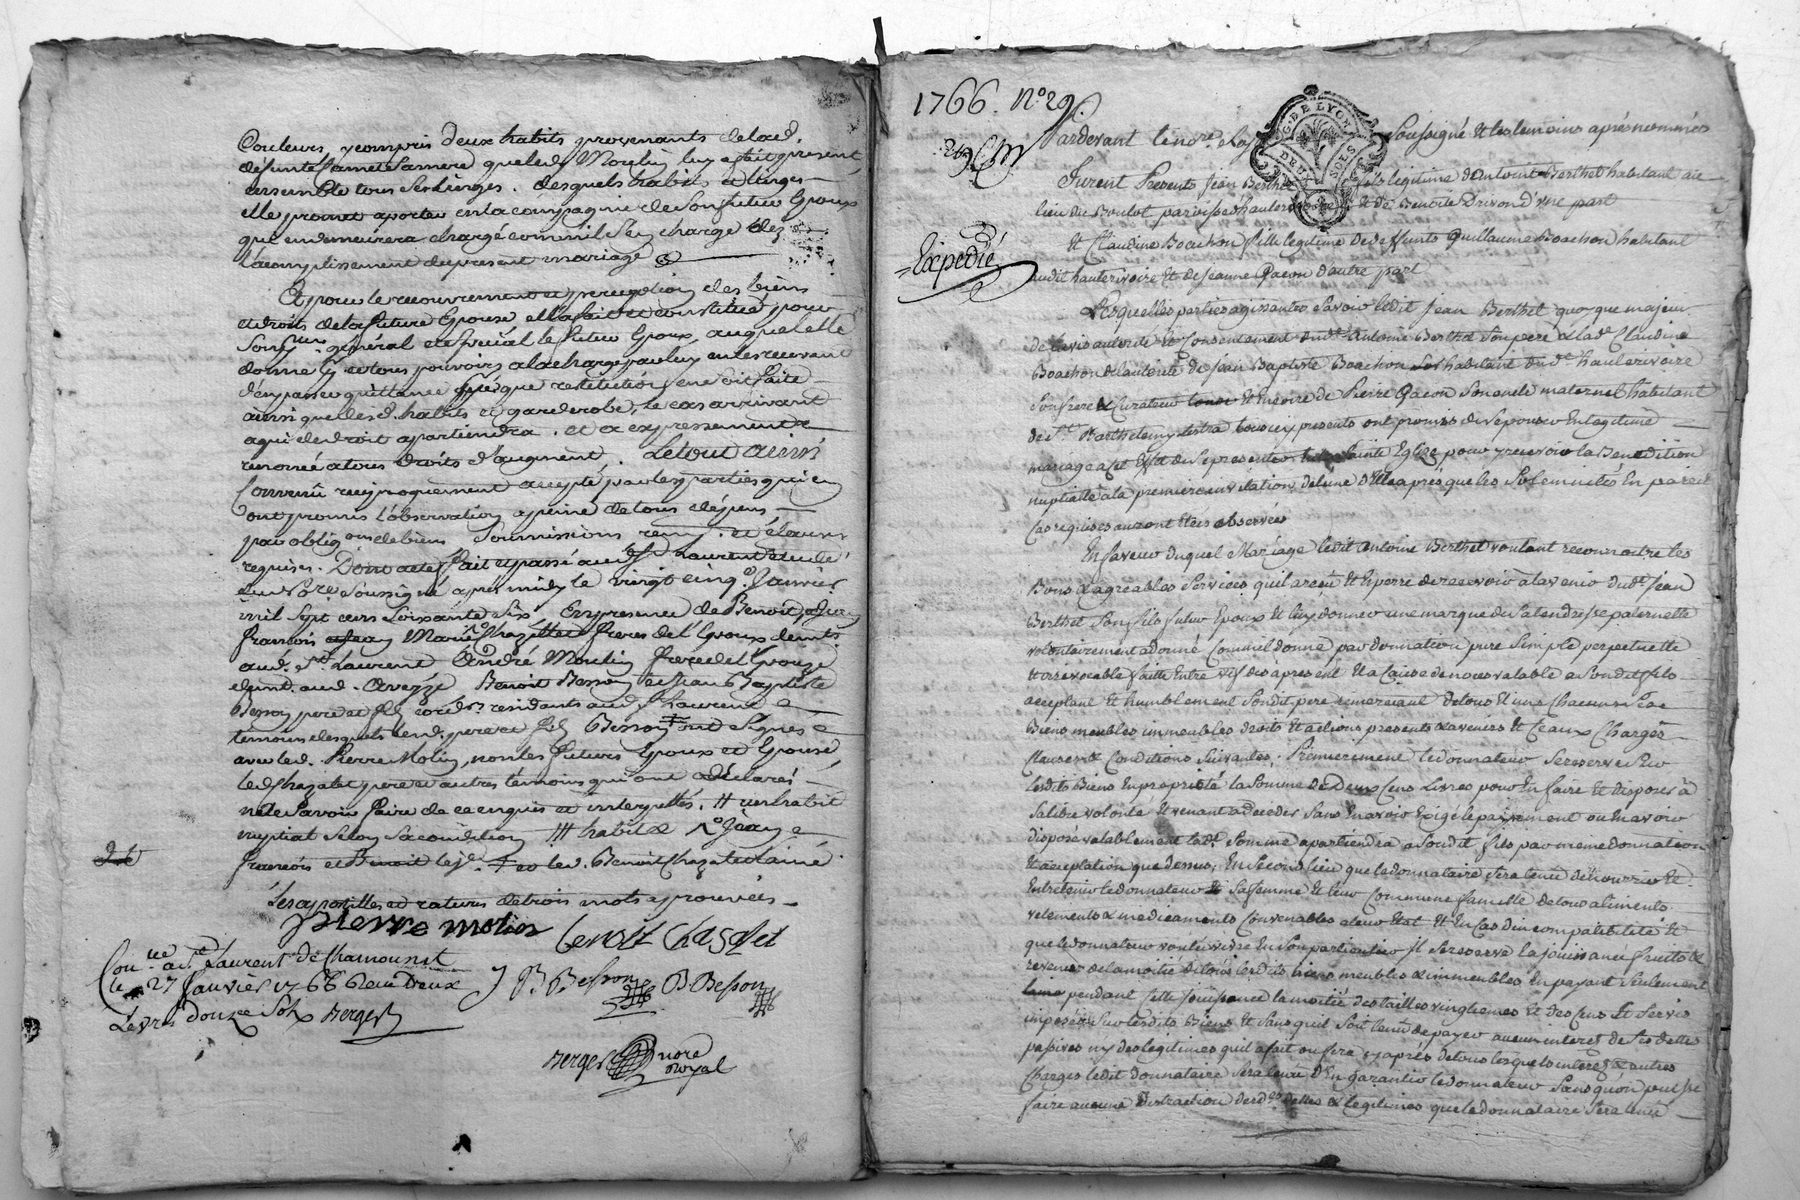 Couleurs, y compris deux habits provenants de lad.
défunte Jeanne Lasniere que led. Moulin luy a fait present
ensemble tous ses linges. desquels habits et linges
elle promet aporter en la compagnie de son futur Epoux
qui en demeurera chargé comm'il s'en charge dez
l'acomplissement du present mariage
Et pour le recouvrement et perception des biens
et droits de la future Epouse elle a fait et constitué pour
son pr. général et special le futur Epoux, auquel elle
donne tous pouvoirs a la charge par luy en les recevant
d'en passer quittance jusques que restitution en doit faite
ainsi que lesd. habits et garderobe, le cas arrivant
a qui de droit apartiendra. et a expressement
renoncé a tous droits d'augment. Le tout ainsi
Convenu reciproquement accepté par les parties qui en
ont promis l'observation a peine de tous dépens
par oblig.ons de biens soumissions ren.on et clauses
requises. Dont acte fait et passé aud. St Laurent étude
du No.re soussigné apres midy le vingt cinq.e Janvier
mil sept cens soixante six En presence de Benoit,
francois et Jean Marie Chazallet freres de l'Epoux demts.
aud. St. Laurent André Moulin frere de l'Epouze
demt. aud. Aveyze Benoit Besson et Jean Baptiste
Besson pere et fils cord.rs residents aud. St Laurent
temoins lesquels led. pere et fils Besson ont signés
avec led. Pierre Molin, non les futurs Epoux et Epouse
led Chazalet pere et autres témoins qui ont déclarés
ne le savoir faire de ce enquis et interpellés. H un habit
nuptial selon sa condition /// habit & N.o Jean
francois et Benoit le je. ‡ et led. Benoit Chazalet lainé
Les apostilles et ratures de trois mots aprouvées
pierre molin benoit chasalet
Con.lée a St Laurent de Chamousset
le 27 Janvier 1766 Receu Deux
Livres douze Sols Berger
J B Besson B Besson
Berger nore royal
1766. N.o 29.
Expedié
G. DE LYON
DEUX SOLS
Pardevant le no.re soussigné et les temoins aprés nommés
Furent Presents Jean Berthet fils legitime d'Antoine Berthet habitant au
lieu du Boulot parroisse d'hauterivoire et de Benoite Drivon d'une part
Et Claudine Boachon fille legitime de deffunts Guillaume Boachon habitant
audit hauterivoire Et de Jeanne Gacon d'autre part
Lesquelles parties agissantes Savoir ledit Jean Berthet quoyque majeur
de lavis autorité et consentement dud.t Antoine Berthet Son pere & lad.e Claudine
Boachon de lautorité de Jean Baptiste Boachon habitant dud.t hauterivoire
Son frere & Curateur Et encore de Pierre Gacon Son oncle maternel habitant
de S.t Barthelemy Lestra tous icy presents ont promis de se epouser En legitime
mariage a cet Effet de se presenter Sainte Eglize, pour y recevoir la Benediction
nuptiale a la premiere invitation de lune d'Elles apres que les Solemnités En pareil
Cas requises auront Etées observées
En faveur duquel Mariage ledit Antoine Berthet voulant reconnoitre les
Bons & agreables Services quil a recu Et Espere de recevoir a lavenir dud.t Jean
Berthet Son fils futur Epoux & luy donner une marque de sa tendresse paternelle
volontairement a donné Comm'il donne par donnation pure Simple perpetuelle
Et irrevocable faitte Entre vifs des apresent Et a Cause de noces valable a Son dit fils
acceptant Et humblement Son dit pere remerciant de tous Et uns Chacuns Ses
Biens meubles immeubles droits Et actions presents & avenirs Et Ceaux Charges
Clauses & Conditions Suivantes. Premierement le donnateur Se reserve Sur
lesdits Biens En proprieté la Somme de Deux Cens Livres pour En faire Et disposer à
Sa libre volonté Et venant a deceder Sans En avoir Exigé le payement ou En avoir
disposé valablement lad.te Somme apartiendra a Son dit fils par meme donnation
Et acceptation que dessus, En Second lieu que le donnataire Sera tenu de nourrir Et
Entretenir le donnateur Et Sa femme Et leur Commune famille de tous aliments
vetements & medicaments Convenables a leur Etat Et En Cas d'incompatibilité Et
que le donnateur voulut vivre En Son particulier Il Se reserve la jouissance fruits &
revenus de la moitié de tous lesdits biens meubles & immeubles En payant Seulement
pendant Cette jouissance la moitié des tailles vingtiemes Et des Cens Et Servis
imposés Sur lesdits Biens Et Sans quil Soit tenu de payer aucun interet de Ses dettes
passives ny des legitimes quil a fait ou fera cy aprés de tous lesquels interets & autres
Charges ledit donnataire Sera tenu d'En garantir le donnateur Sans qu'on puisse
faire aucune distraction desd.es dettes & legitimes que le donnataire Sera tenu